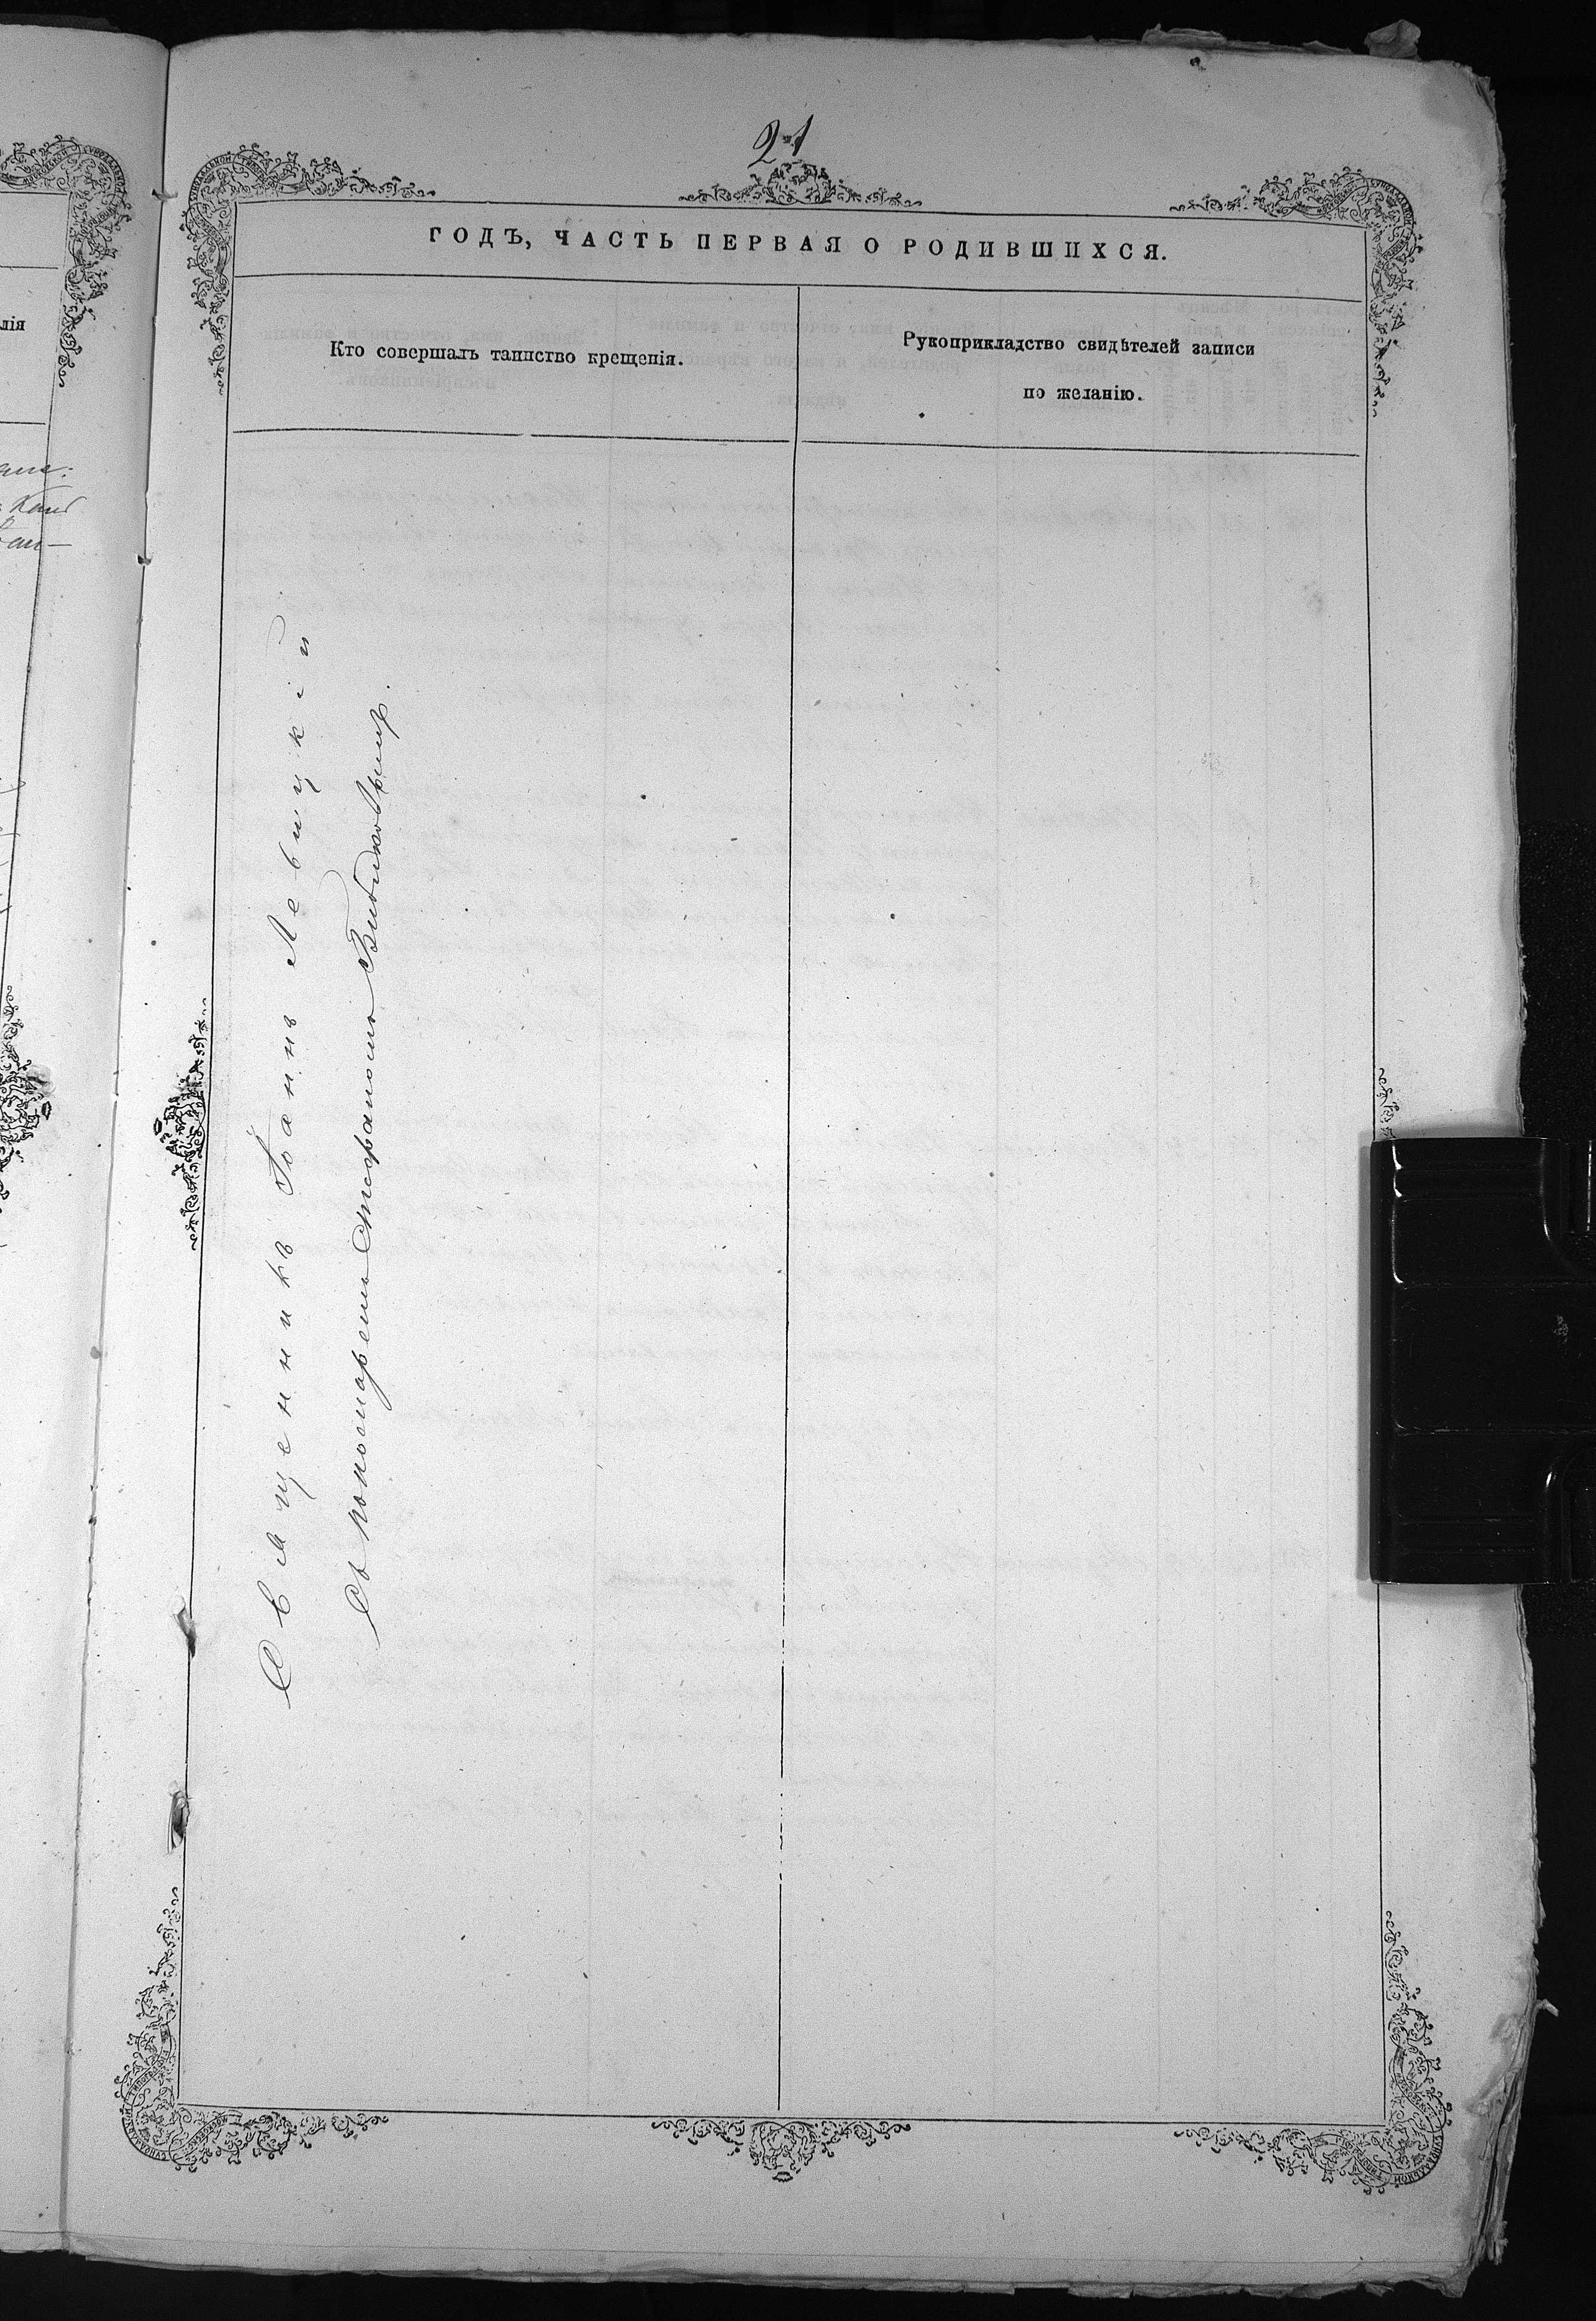 21
ГОДЪ, ЧАСТЬ ПЕРВАЯ О РОДИВШИХСЯ.
Кто совершалъ таинство крещенія.
Рукоприкладство свидѣтелей записи
по желанію.
Священникъ Іоаннъ Левицкій
Съ пономаремъ Стефаномъ
лія